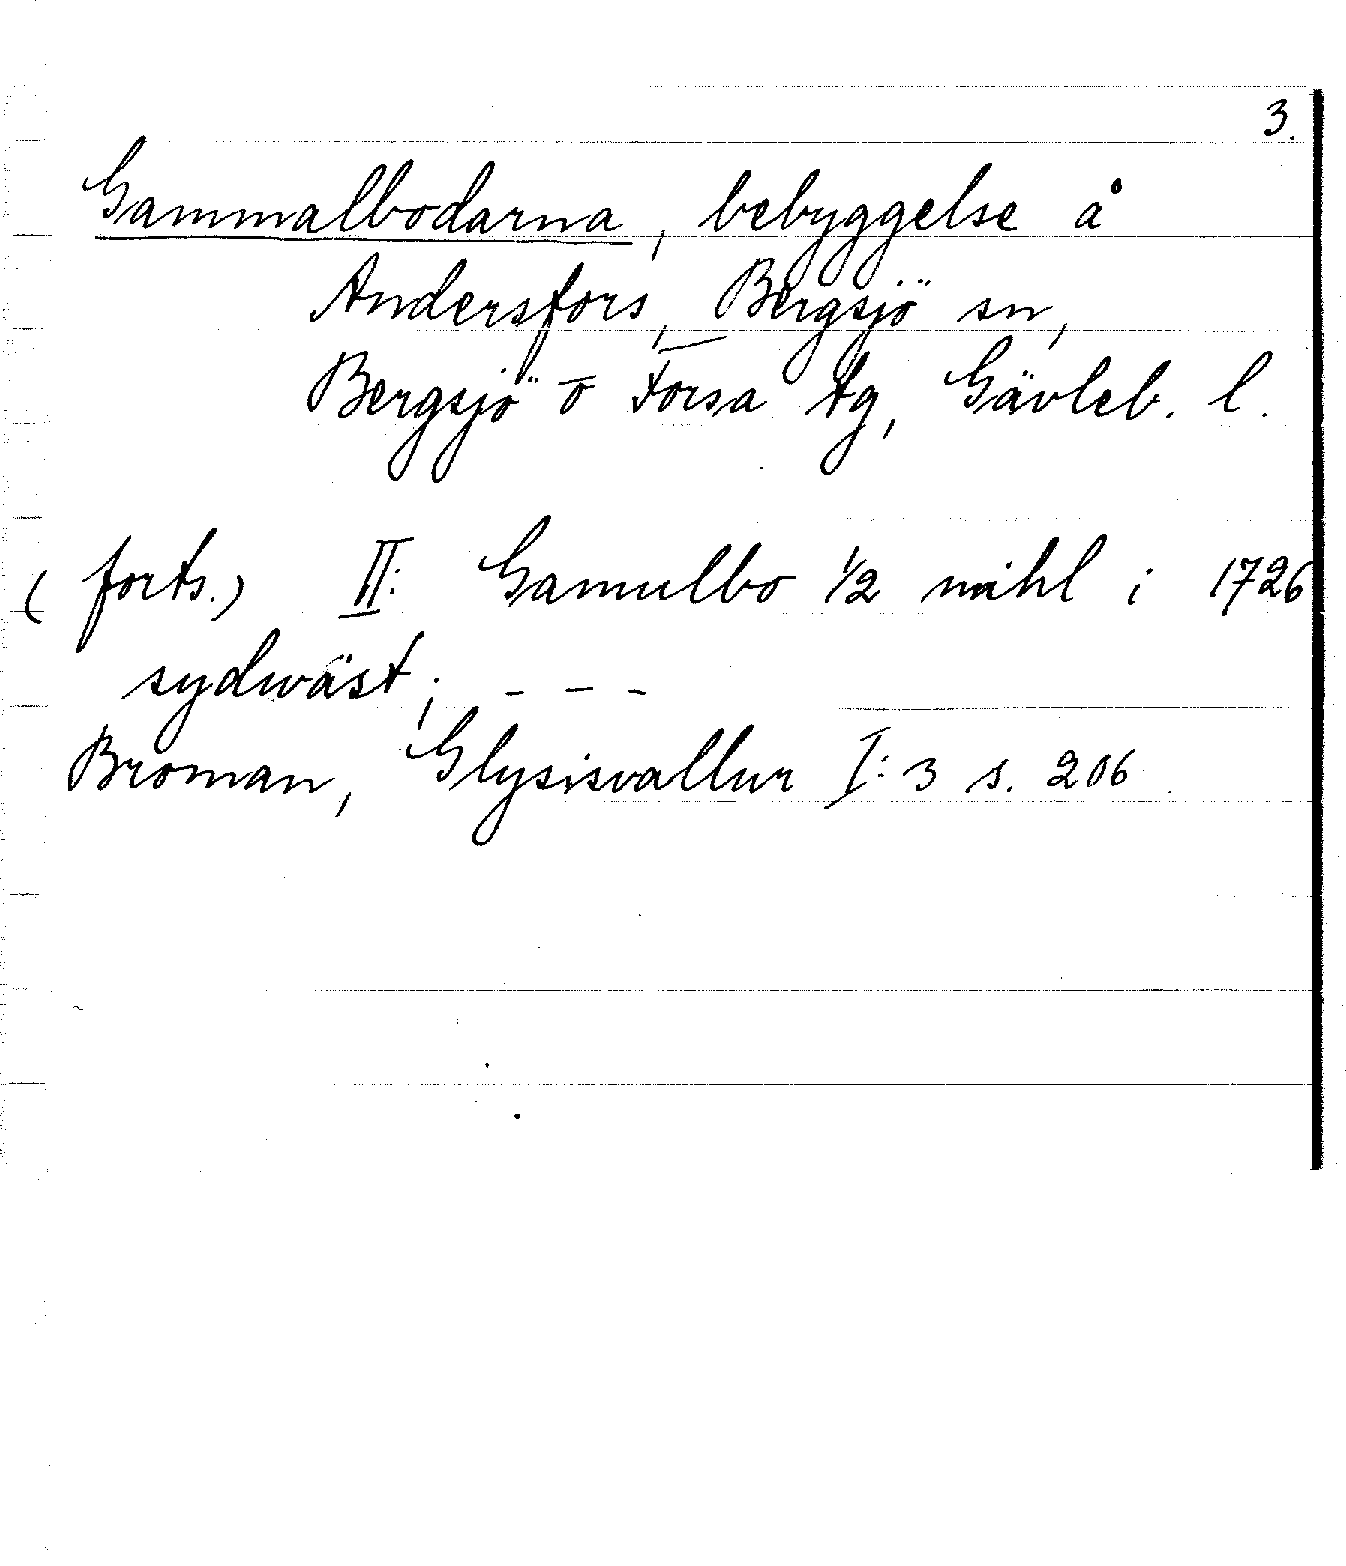 3.
Gammalbodarna, bebyggelse å
Andersfors, Bergsjö sn,
Bergsjö o Forsa tg, Gävleb. l.
(forts.) II: Gamulbo 1/2 mihl i 1726
sydwäst; - - -
Broman, Glysisvallur I:3 s. 206